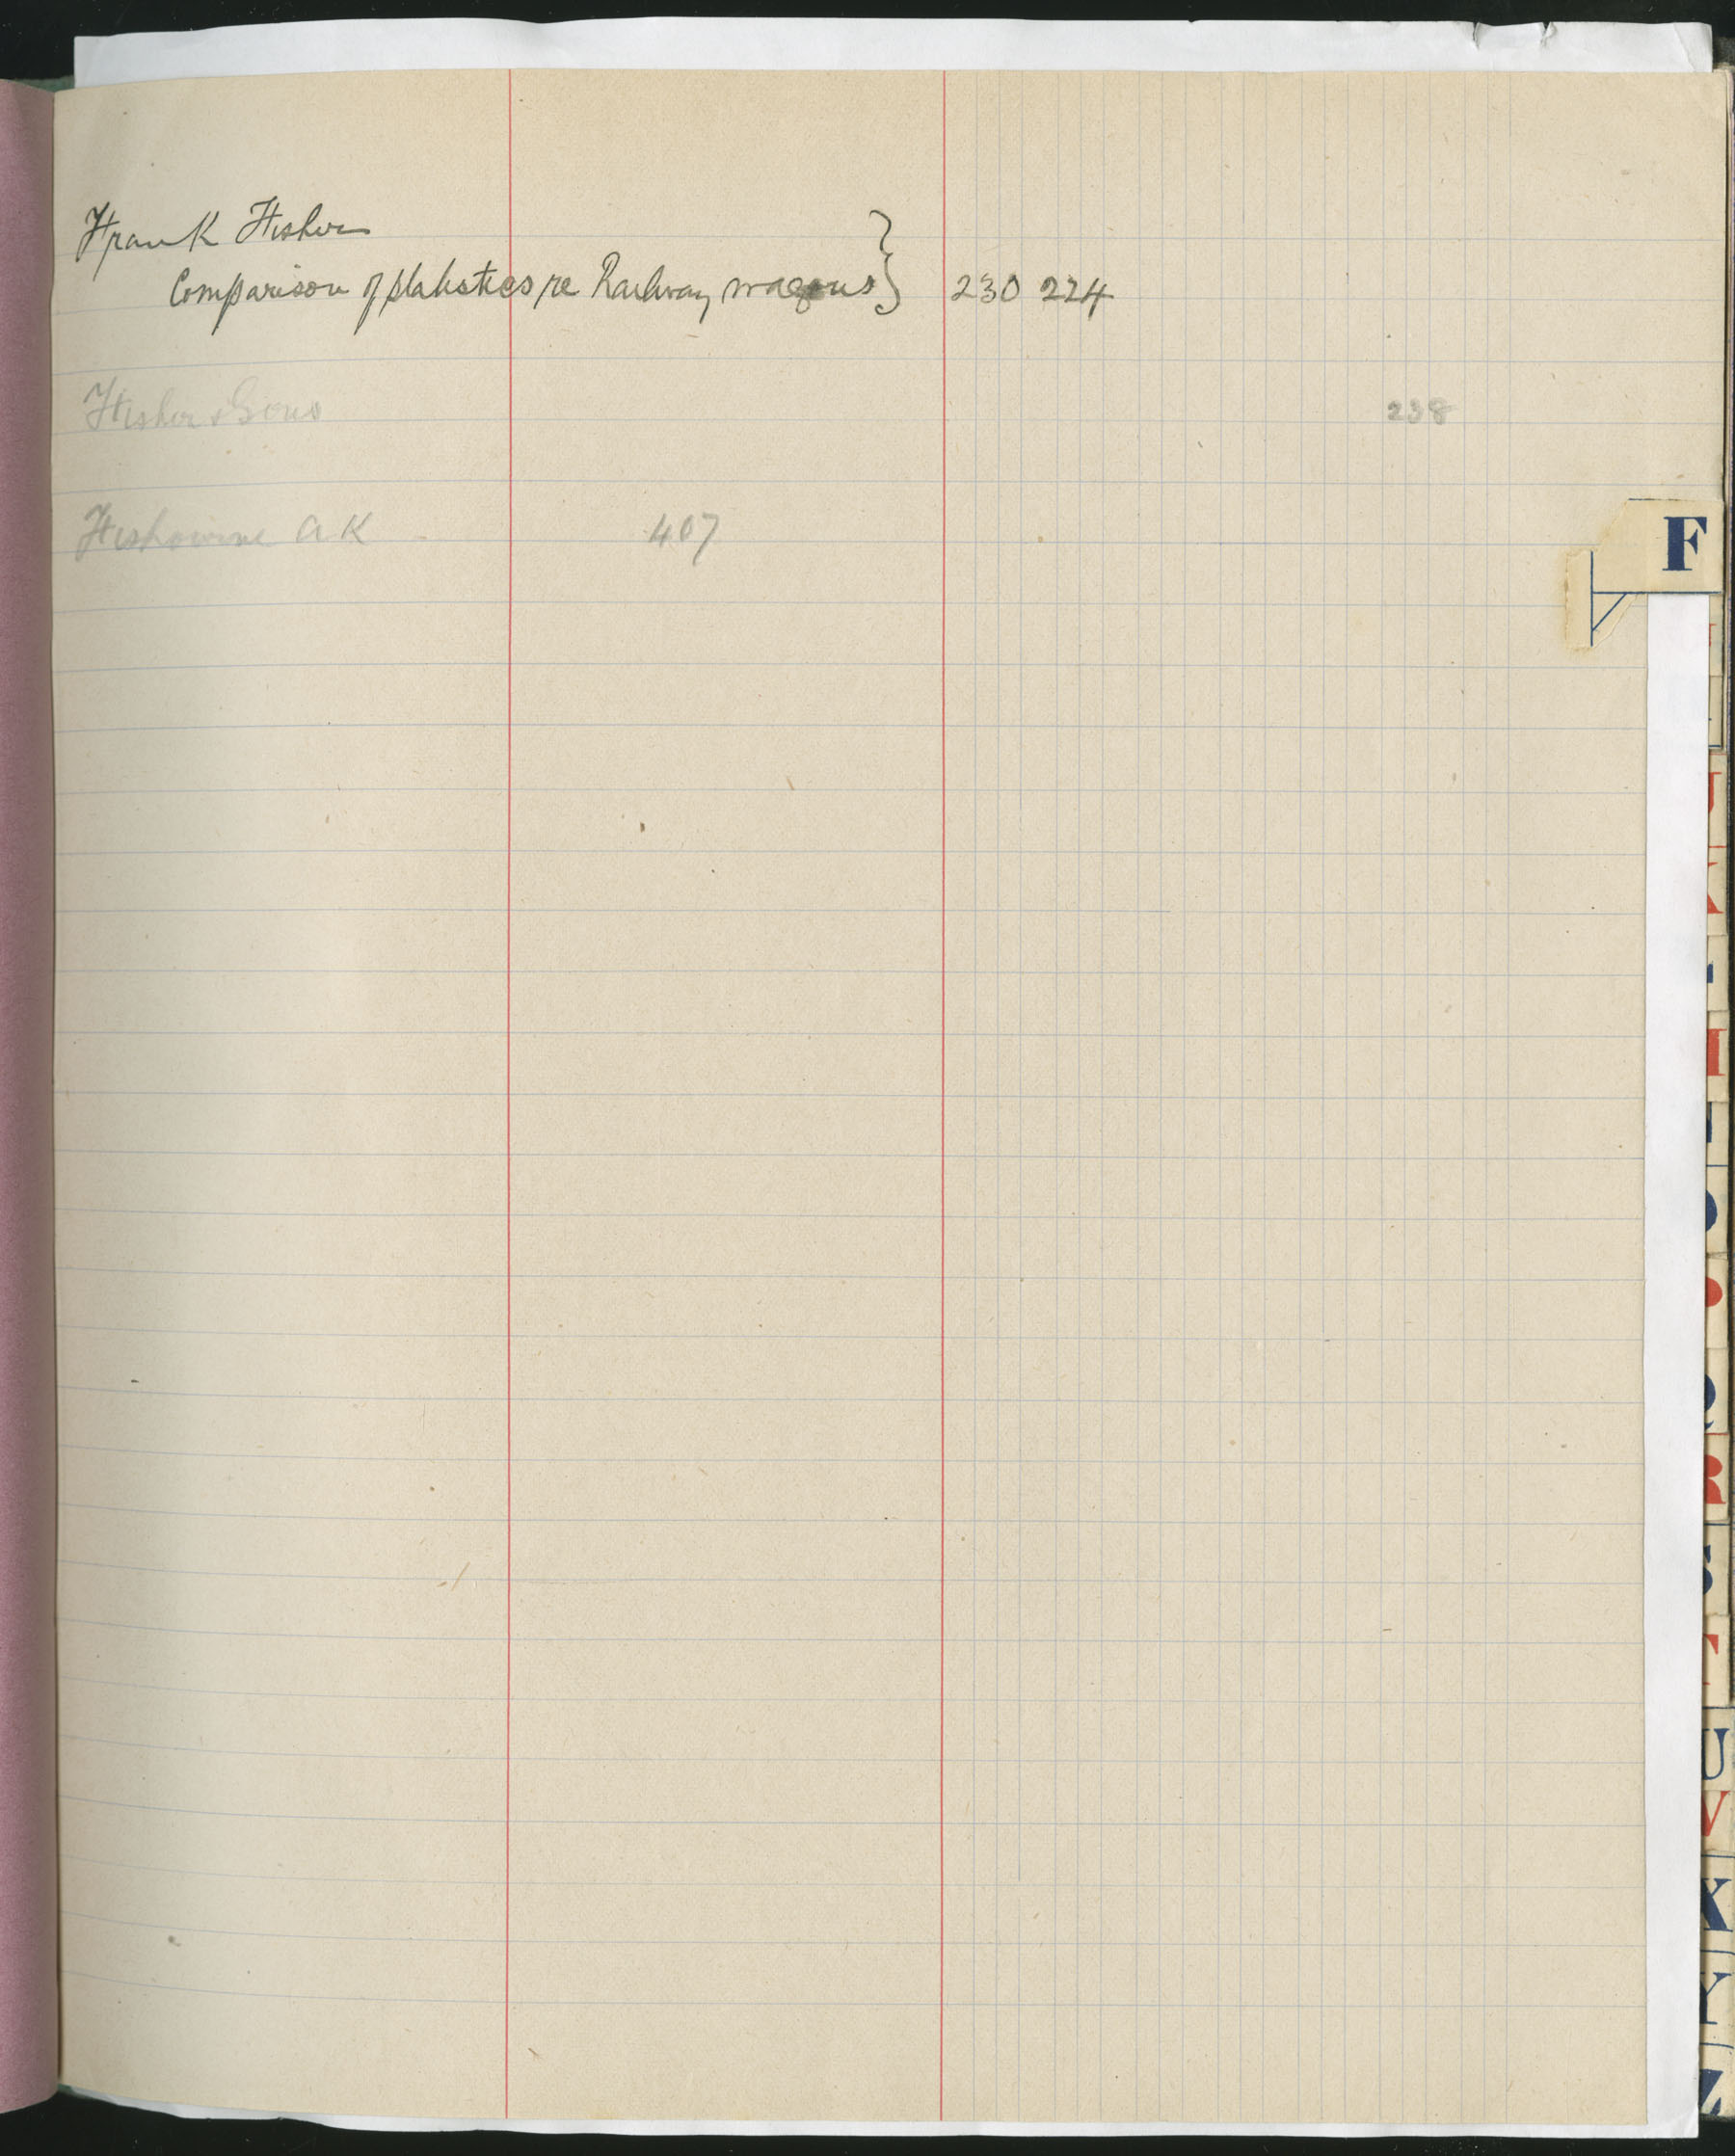 Frank Fisher
Comparison of statistics re Railway wagons } 230 224
Fisher & Sons 238
A K 407
F
U
V
X
Y
Z